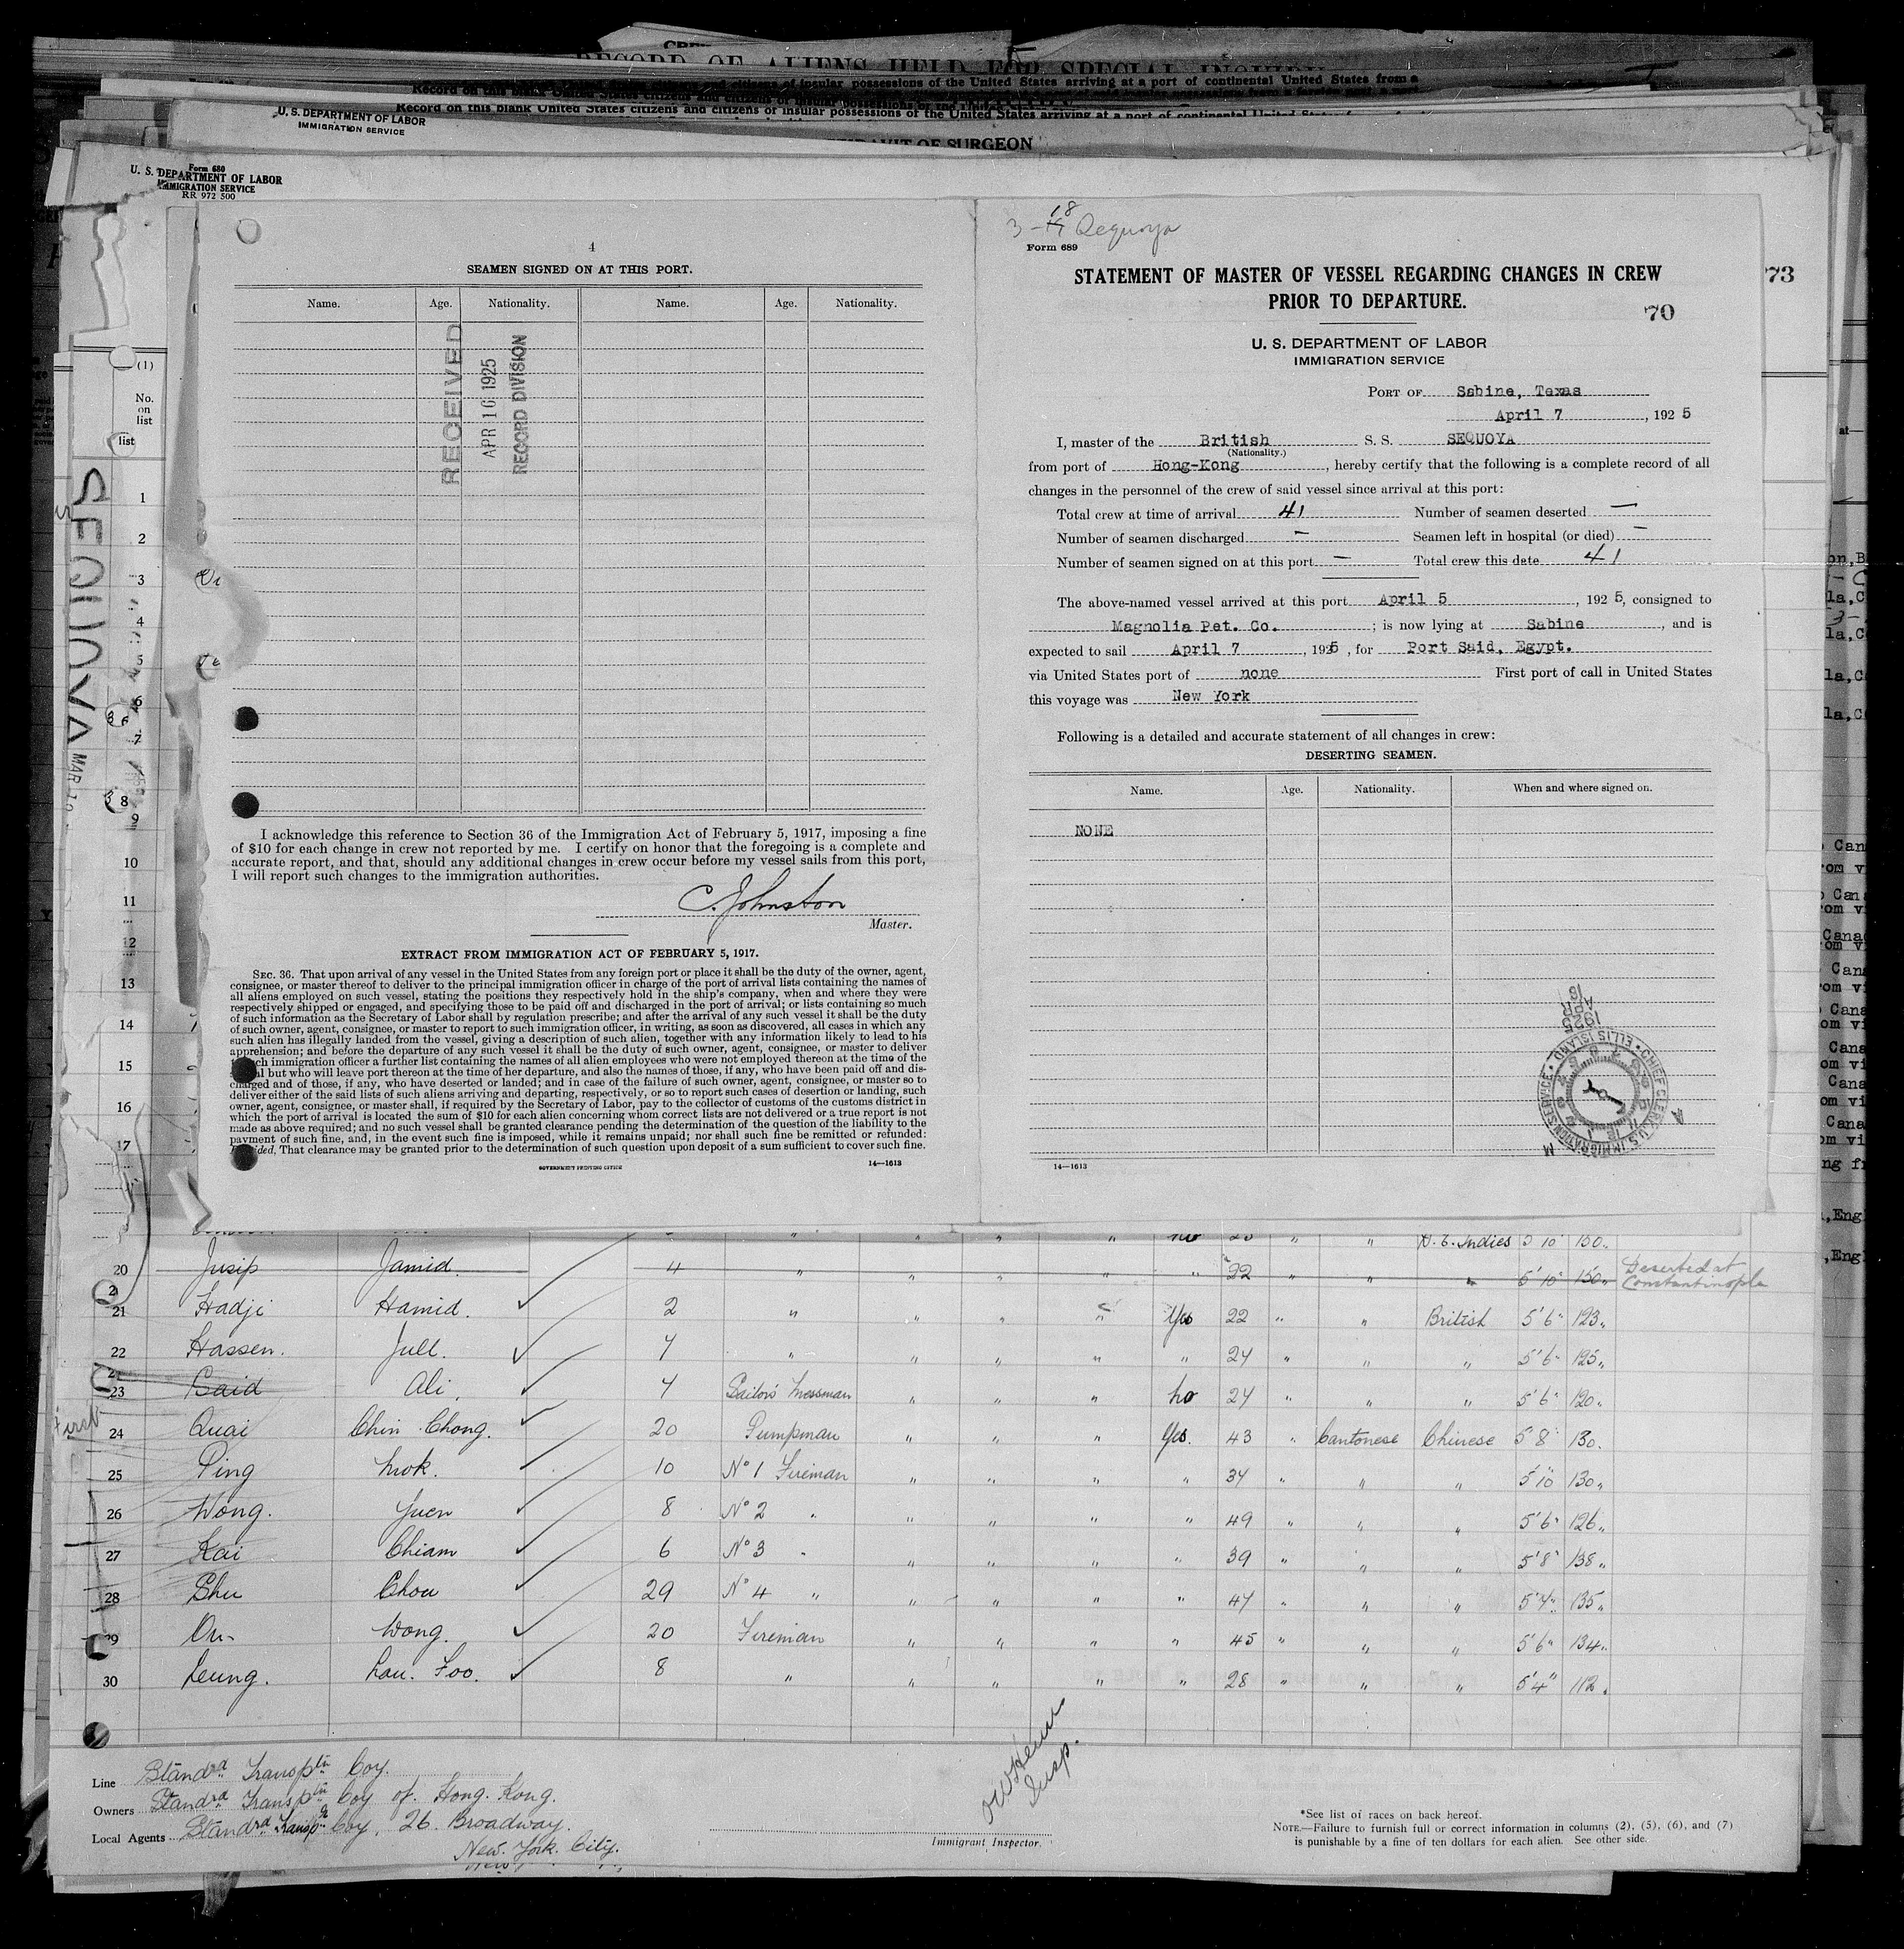 RECORD OF ALIENS HELD FOR SPECIAL INQUIRY
Record on this blank United States citizens and citizens of insular possessions of the United States arriving at a port of continental United States from a
Record on this blank United States citizens and citizens of insular possessions of the United States arriving at a port of continental United States
U. S. DEPARTMENT OF LABOR
IMMIGRATION SERVICE
OF SURGEON
Form 680
U. S. DEPARTMENT OF LABOR
IMMIGRATION SERVICE
RR 972 500
(1)
No.
on
list
list
SEQUOYA
4
SEAMEN SIGNED ON AT THIS PORT.
Name. Age. Nationality. Name. Age. Nationality.
RECEIVED
APR 16 1925
RECORD DIVISION
I acknowledge this reference to Section 36 of the Immigration Act of February 5, 1917, imposing a fine
of $10 for each change in crew not reported by me. I certify on honor that the foregoing is a complete and
accurate report, and that, should any additional changes in crew occur before my vessel sails from this port,
I will report such changes to the immigration authorities.
C. Johnston
Master.
EXTRACT FROM IMMIGRATION ACT OF FEBRUARY 5, 1917.
SEC. 36. That upon arrival of any vessel in the United States from any foreign port or place it shall be the duty of the owner, agent,
consignee, or master thereof to deliver to the principal immigration officer in charge of the port of arrival lists containing the names of
all aliens employed on such vessel, stating the positions they respectively hold in the ship's company, when and where they were
respectively shipped or engaged, and specifying those to be paid off and discharged in the port of arrival; or lists containing so much
of such information as the Secretary of Labor shall by regulation prescribe; and after the arrival of any such vessel it shall be the duty
of such owner, agent, consignee, or master to report to such immigration officer, in writing, as soon as discovered, all cases in which any
such alien has illegally landed from the vessel, giving a description of such alien, together with any information likely to lead to his
apprehension; and before the departure of any such vessel it shall be the duty of such owner, agent, consignee, or master to deliver
such immigration officer a further list containing the names of all alien employees who were not employed thereon at the time of the
but who will leave port thereon at the time of her departure, and also the names of those, if any, who have been paid off and dis-
charged and of those, if any, who have deserted or landed; and in case of the failure of such owner, agent, consignee, or master so to
deliver either of the said lists of such aliens arriving and departing, respectively, or so to report such cases of desertion or landing, such
owner, agent, consignee, or master shall, if required by the Secretary of Labor, pay to the collector of customs of the customs district in
which the port of arrival is located the sum of $10 for each alien concerning whom correct lists are not delivered or a true report is not
made as above required; and no vessel shall be granted clearance pending the determination of the question of the liability to the
payment of such fine, and, in the event such fine is imposed, while it remains unpaid; nor shall such fine be remitted or refunded:
Provided, That clearance may be granted prior to the determination of such question upon deposit of a sum sufficient to cover such fine.
GOVERNMENT PRINTING OFFICE 14—1613
3 - 18 Sequoya
Form 689
STATEMENT OF MASTER OF VESSEL REGARDING CHANGES IN CREW
PRIOR TO DEPARTURE.
70
U. S. DEPARTMENT OF LABOR
IMMIGRATION SERVICE
PORT OF Sabine, Texas
April 7, 1925
I, master of the British S. S. SEQUOYA
(Nationality.)
from port of Hong-Kong, hereby certify that the following is a complete record of all
changes in the personnel of the crew of said vessel since arrival at this port:
Total crew at time of arrival 41 Number of seamen deserted —
Number of seamen discharged — Seamen left in hospital (or died) —
Number of seamen signed on at this port — Total crew this date 41
The above-named vessel arrived at this port April 5, 1925, consigned to
Magnolia Pet. Co.; is now lying at Sabine, and is
expected to sail April 7, 1925, for Port Said, Egypt.
via United States port of none First port of call in United States
this voyage was New York
Following is a detailed and accurate statement of all changes in crew:
DESERTING SEAMEN.
Name. Age. Nationality. When and where signed on.
NONE
CHIEF CLERK, U.S. IMMIGRATION SERVICE • ELLIS ISLAND •
14—1613
D. E. Indies 5 10 150
20 Jusip Jamid. 4 " " " " " 22 " " " 5'10" 150" Deserted at Constantinople
21 Hadji Hamid. 2 " " " " Yes 22 " " British 5'6" 123"
22 Hassen. Jull. 4 " " " " " 24 " " " 5'6" 125"
23 Said Ali. 4 Sailors Messman " " " no 24 " " " 5'6" 120"
24 Quai Chin Chong. 20 Pumpman " " " Yes. 43 " Cantonese Chinese 5'8" 130.
25 Ping Mok. 10 No 1 Fireman " " " " 34 " " " 5'10 130"
26 Wong. Yuen 8 No 2 " " " " " 49 " " " 5'6" 126"
27 Kai Chiam 6 No 3 " " " " " 39 " " " 5'8" 138"
28 Shu Chou 29 No 4 " " " " " 47 " " " 5'4" 135"
29 On Wong. 20 Fireman " " " " 45 " " " 5'6" 134"
30 Leung. Lau. Foo. 8 " " " " " 28 " " " 5'4" 112"
Line Standrd Transptn Coy.
Owners Standrd Transptn Coy of Hong. Kong.
Local Agents Standrd Transp Coy, 26 Broadway.
New. York. City.
Insp.
Immigrant Inspector.
*See list of races on back hereof.
NOTE.—Failure to furnish full or correct information in columns (2), (5), (6), and (7)
is punishable by a fine of ten dollars for each alien. See other side.